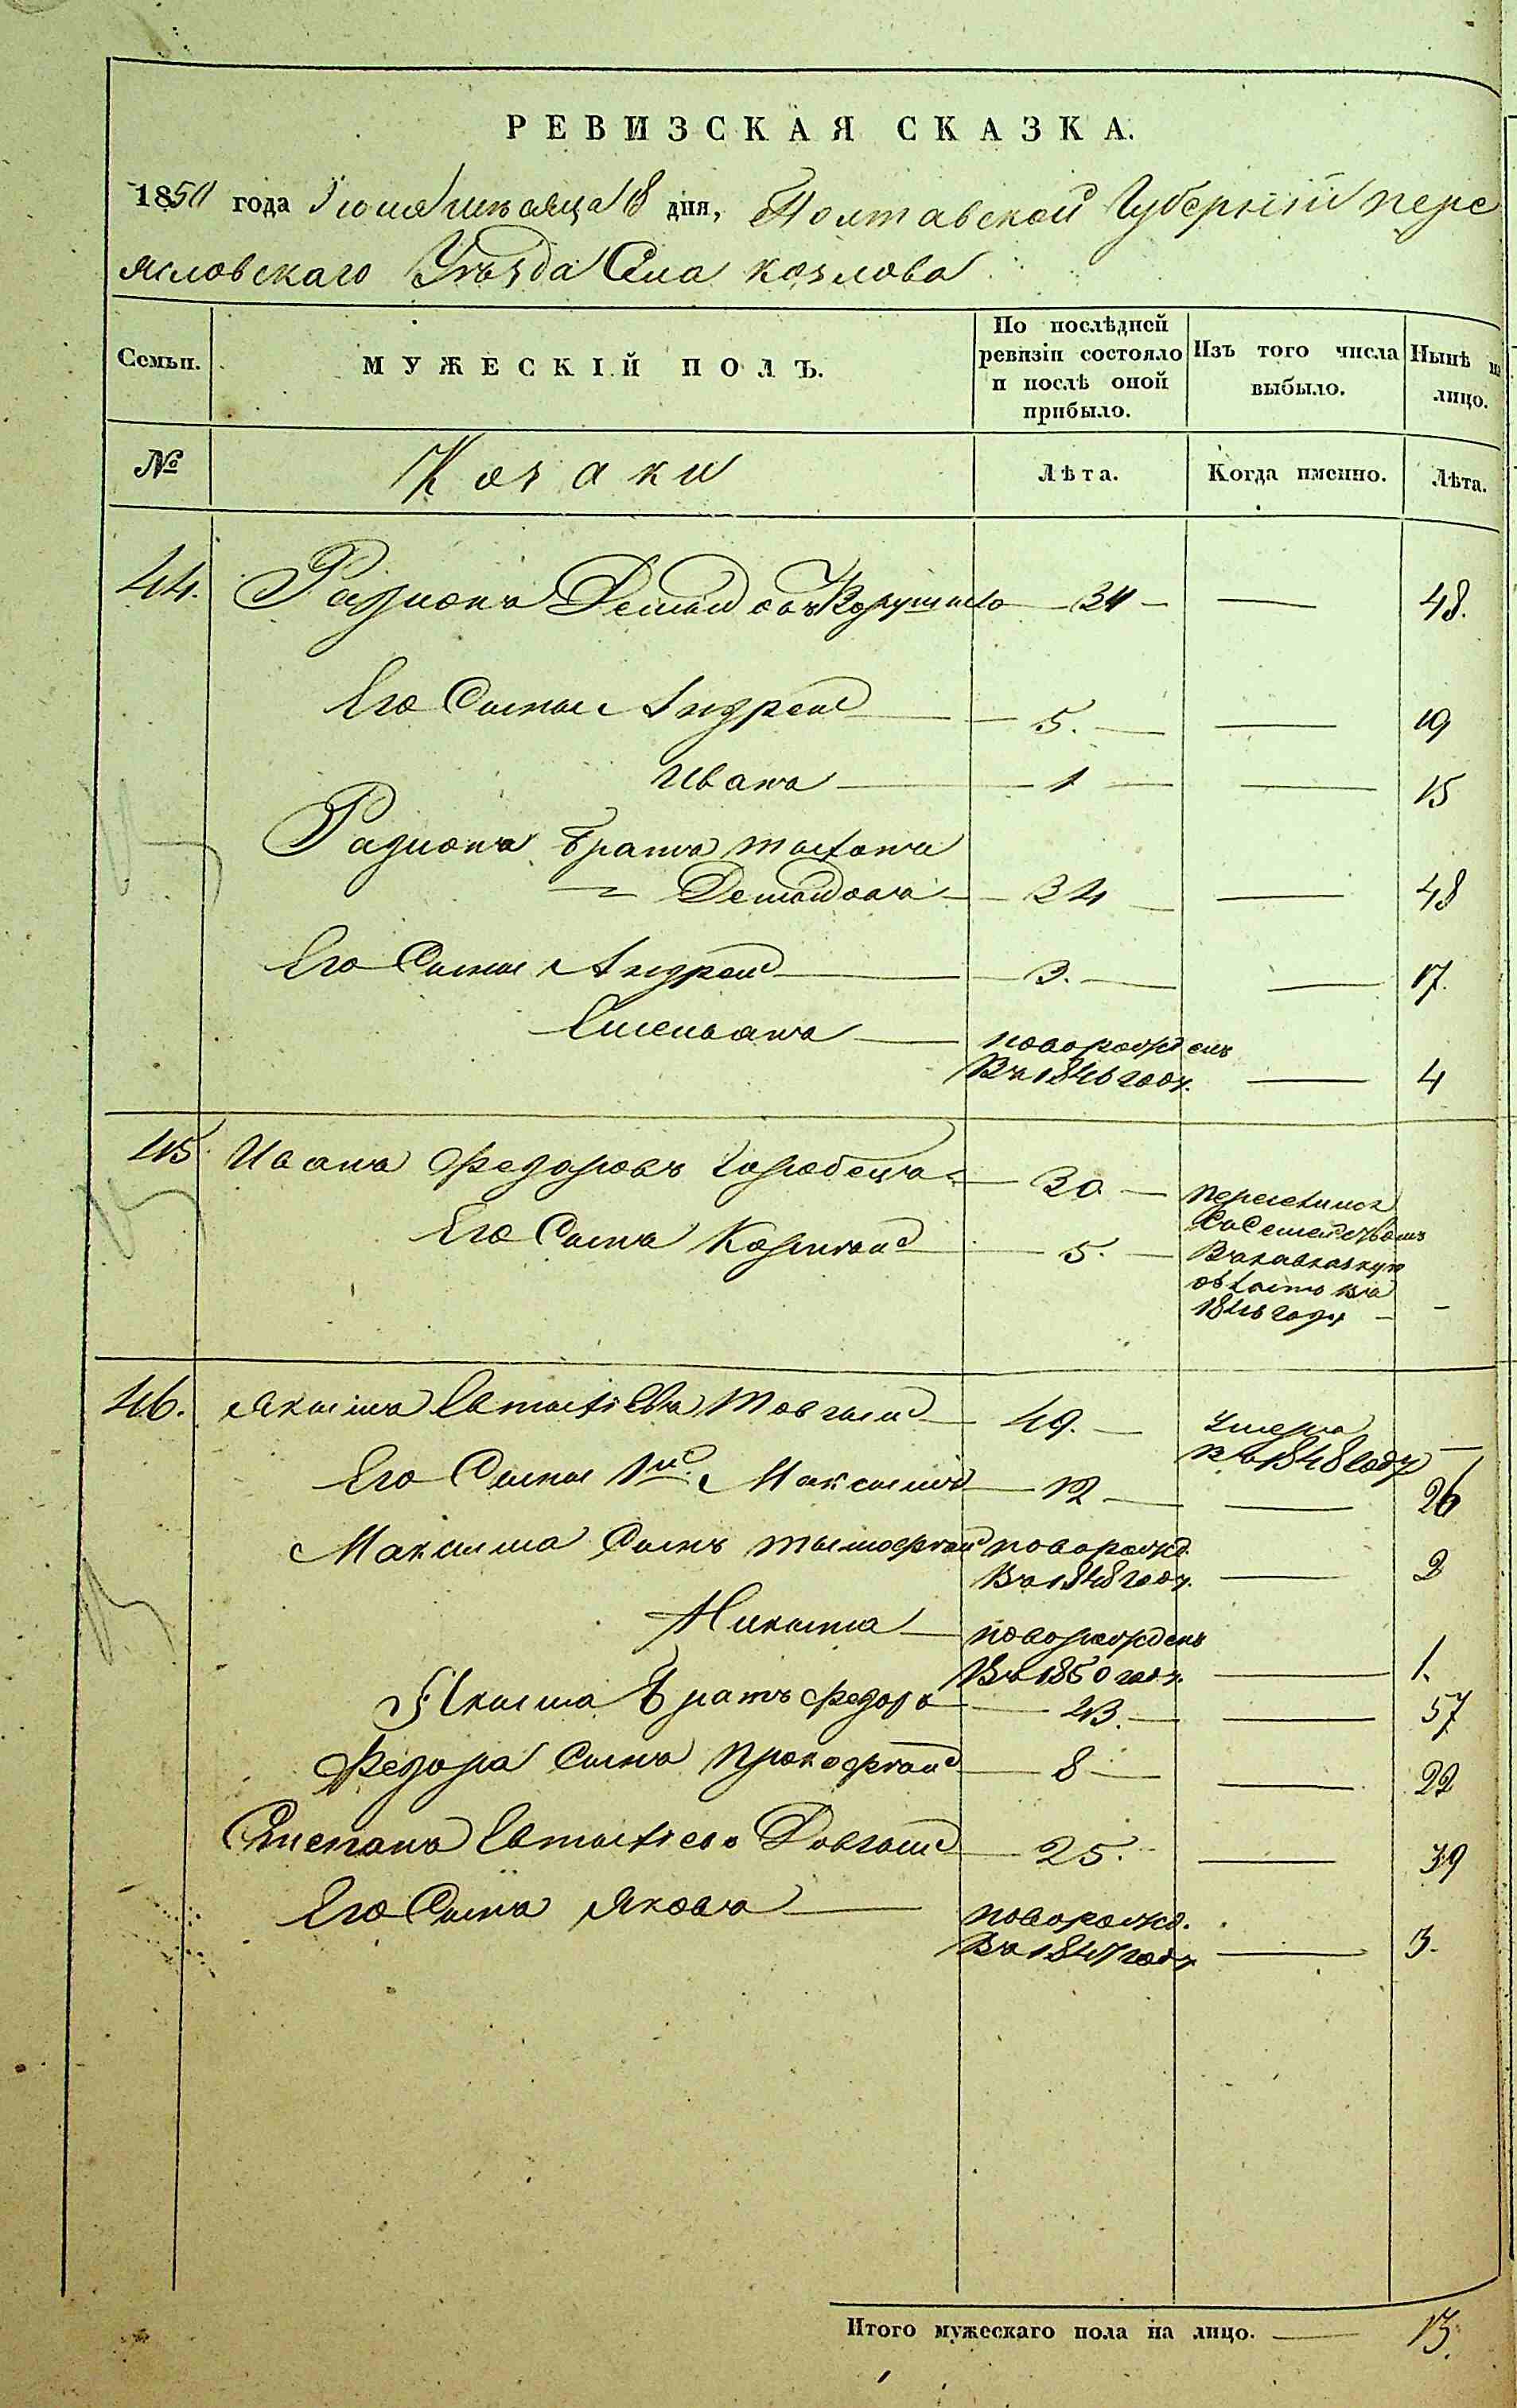 РЕВИЗСКАЯ СКАЗКА.
1850 года Іюня мѣсяца 8 дня, Полтавской Губерніи Пере
яславскаго Уѣзда Села Козлова
Семьи.
МУЖЕСКІЙ ПОЛЪ.
По послѣдней ревизіи состояло и послѣ оной прибыло.
Изъ того числа выбыло.
Нынѣ на лицо.
№
Козаки
Лѣта.
Когда именно.
Лѣта.
44. Радионъ Демидовъ 34 — — 48.
Его Сыны Андрей — 5. — — 19
Иванъ — 1 — — 15
Радиона братъ
Демидовъ — 34 — — 48
Его Сыны Андрей — 3. — — 17.
Емельянъ — новорожденъ
Въ 1846 году. — 4
45. Иванъ Федоровъ Горобецъ — 30 — переселился
Его Сынъ Корнѣй — 5. — Въ кавказкую
область въ
1846 году — -
46. Якимъ Евстафіевъ Товгай — 49. — умеръ
въ 1848 году —
Его Сыны 1й. Максимъ — 12 — — 26
Максима Сынъ Тымофѣй новорожд.
Въ 1848 году. — 2
Никита — новорожденъ
Въ 1850 году. — 1.
Якима братъ Федоръ — 43. — — 57
Федора Сынъ Прокофѣй — 8 — — 22
Степанъ Евстафіевъ Довгай — 25. — 39
Его Сынъ Яковъ — новорожд.
Въ 1847 году — 3.
Итого мужескаго пола на лицо. — 13.